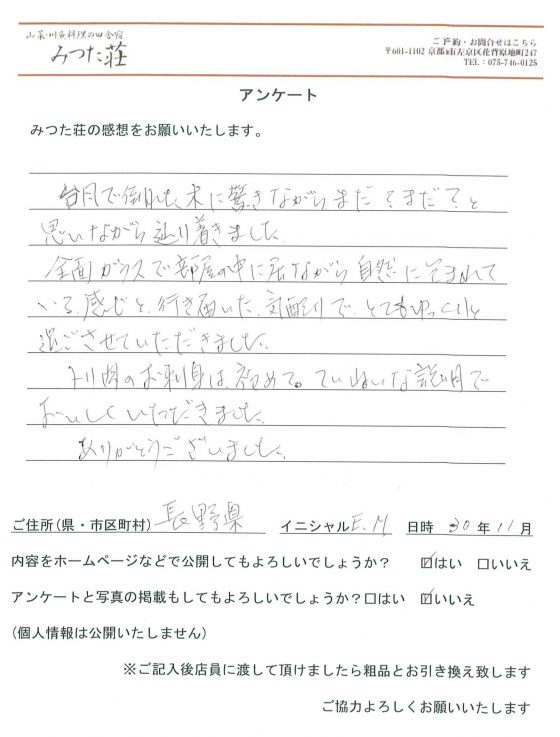 山菜・川魚料理の田舎宿
みつた荘
ご予約・お問合せはこちら
〒601-1102 京都市左京区花背原地町247
TEL：075-746-0125
アンケート
みつた荘の感想をお願いいたします。
台風で倒れた木に驚きながらまだ？まだ？と
思いながら辿り着きました。
全面ガラスで部屋の中に居ながら自然に包まれて
いる感じと、行き届いた気配りで、とてもゆっくりと
過ごさせていただきました。
トリ肉のお刺身は初めて。ていねいな説明で
おいしくいただきました。
ありがとうございました。
ご住所(県・市区町村) 長野県 イニシャル E.M 日時 30年11月
内容をホームページなどで公開してもよろしいでしょうか？ ☑はい □いいえ
アンケートと写真の掲載もしてもよろしいでしょうか？□はい ☑いいえ
(個人情報は公開いたしません)
※ご記入後店員に渡して頂けましたら粗品とお引き換え致します
ご協力よろしくお願いいたします